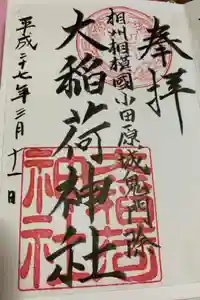 奉拝
相州相模國小田原城鬼門除
大稲荷神社
平成二十七年三月十一日